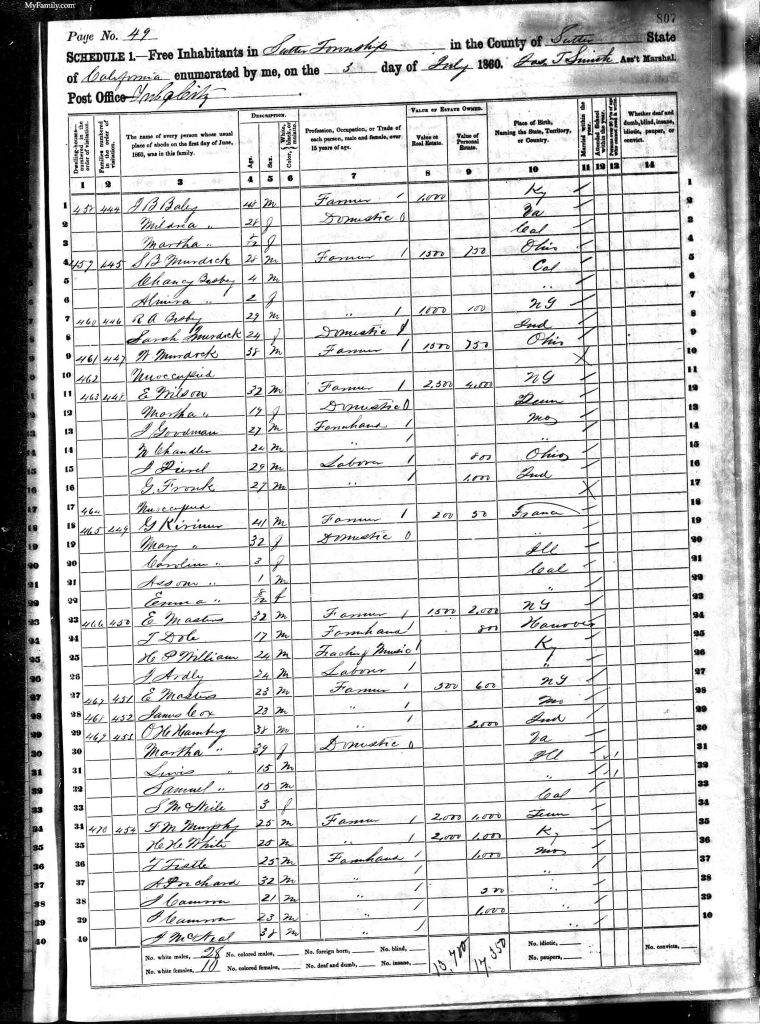 MyFamily.com
807
Page No. 49
SCHEDULE 1.—Free Inhabitants in Sutter Township in the County of Sutter State
of California enumerated by me, on the 3 day of July 1860. Jas T Smith Ass't Marshal.
Post Office Yuba City
Dwelling-houses—numbered in the order of visitation.
Families numbered in the order of visitation.
The name of every person whose usual place of abode on the first day of June, 1860, was in this family.
DESCRIPTION.
Age.
Sex.
Color, White, black, or mulatto.
Profession, Occupation, or Trade of each person, male and female, over 15 years of age.
VALUE OF ESTATE OWNED.
Value of Real Estate.
Value of Personal Estate.
Place of Birth, Naming the State, Territory, or Country.
Married within the year.
Attended School within the year.
Whether deaf and dumb, blind, insane, idiotic, pauper, or convict.
1 2 3 4 5 6 7 8 9 10 11 12 13 14
1 458 444 J B Baley 48 m Farmer 1 1,000 Ky 1
2 28 f Domestic 0 Va 2
3 Martha " f Cal 3
4 459 445 S B Murdock 28 m Farmer 1 1500 750 Ohio
5 Chancy Busby 4 m Cal
6 Almira " 2 f "
7 460 446 R A Busby 29 m " 1 1000 100 NY
8 Sarah Murdock 24 f Domestic Ind
9 461 447 W Murdock 38 m Farmer 1 1500 750 Ohio
10 462 Unoccupied
11 463 448 E Wilson 32 m Farmer 1 2,500 4,000 NY
12 Martha " 19 f Domestic 0
13 J Goodman 27 m Farmhand 1 Mo
14 W Chandler 24 m " 1 "
15 29 m Laborer 1 800 Ohio
16 G Fronk 27 m " 1 1,000 Ind
17 464 Unoccupied
18 465 449 G 41 m Farmer 1 200 50 France
19 Mary " 32 f Domestic 0 "
20 Caroline " 3 f Ill
21 1 m Cal
22 Emma " 8/12 f "
23 466 450 E Masters 32 m Farmer 1 1500 2,000 NY
24 T Dole 17 m Farmhand 1 800 Hanover
25 H P William 24 m Teaching Music 1 Ky
26 J Ardly 24 m Laborer 1 "
27 467 451 E Masters 23 m Farmer 1 500 600 NY
28 468 452 James Cox 23 m " 1 Mo
29 469 453 O H Hamberg 38 m " 1 2,000 Ind
30 Martha " 39 f Domestic 0 Va
31 Lewis " 15 m Ill 1
32 Samuel " 15 m " 1
33 S McNeile 3 f Cal
34 470 454 F M Murphy 25 m Farmer 1 2,000 1,000 Tenn
35 H H White 25 m " 1 2,000 1,000 Ky
36 T 25 m Farmhand 1 1,000 Mo
37 A Prichard 32 m " 1 "
38 J Cameron 21 m " 1 200 "
39 J Cameron 23 m " 1 1,000 "
40 J McNeal 38 m " 1 "
No. white males, 28 No. colored males, No. foreign born, No. blind, 15,700 17,350 No. idiotic, No. convicts,
No. white females, 10 No. colored females, No. deaf and dumb, No. insane, No. paupers,